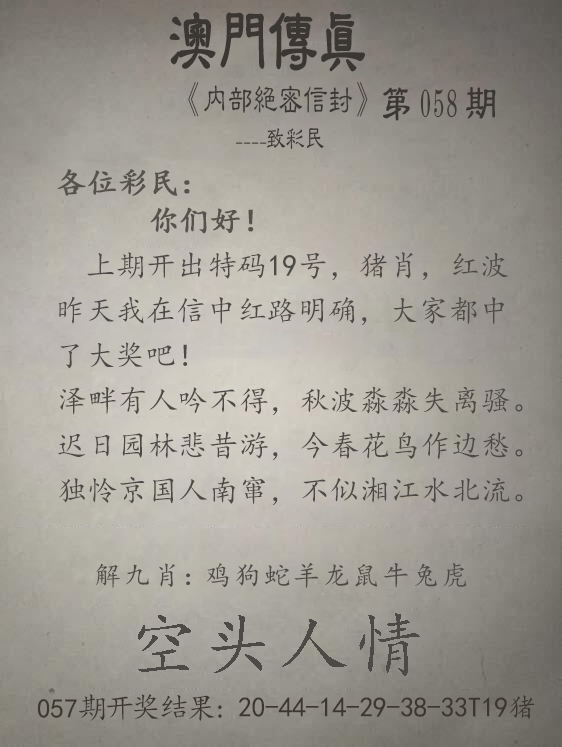 澳門傳眞
《内部絕密信封》第058期
----致彩民
各位彩民：
你们好！
上期开出特码19号，猪肖，红波
昨天我在信中红路明确，大家都中
了大奖吧！
泽畔有人吟不得，秋波淼淼失离骚。
迟日园林悲昔游，今春花鸟作边愁。
独怜京国人南窜，不似湘江水北流。
解九肖：鸡狗蛇羊龙鼠牛兔虎
空头人情
057期开奖结果：20-44-14-29-38-33T19猪